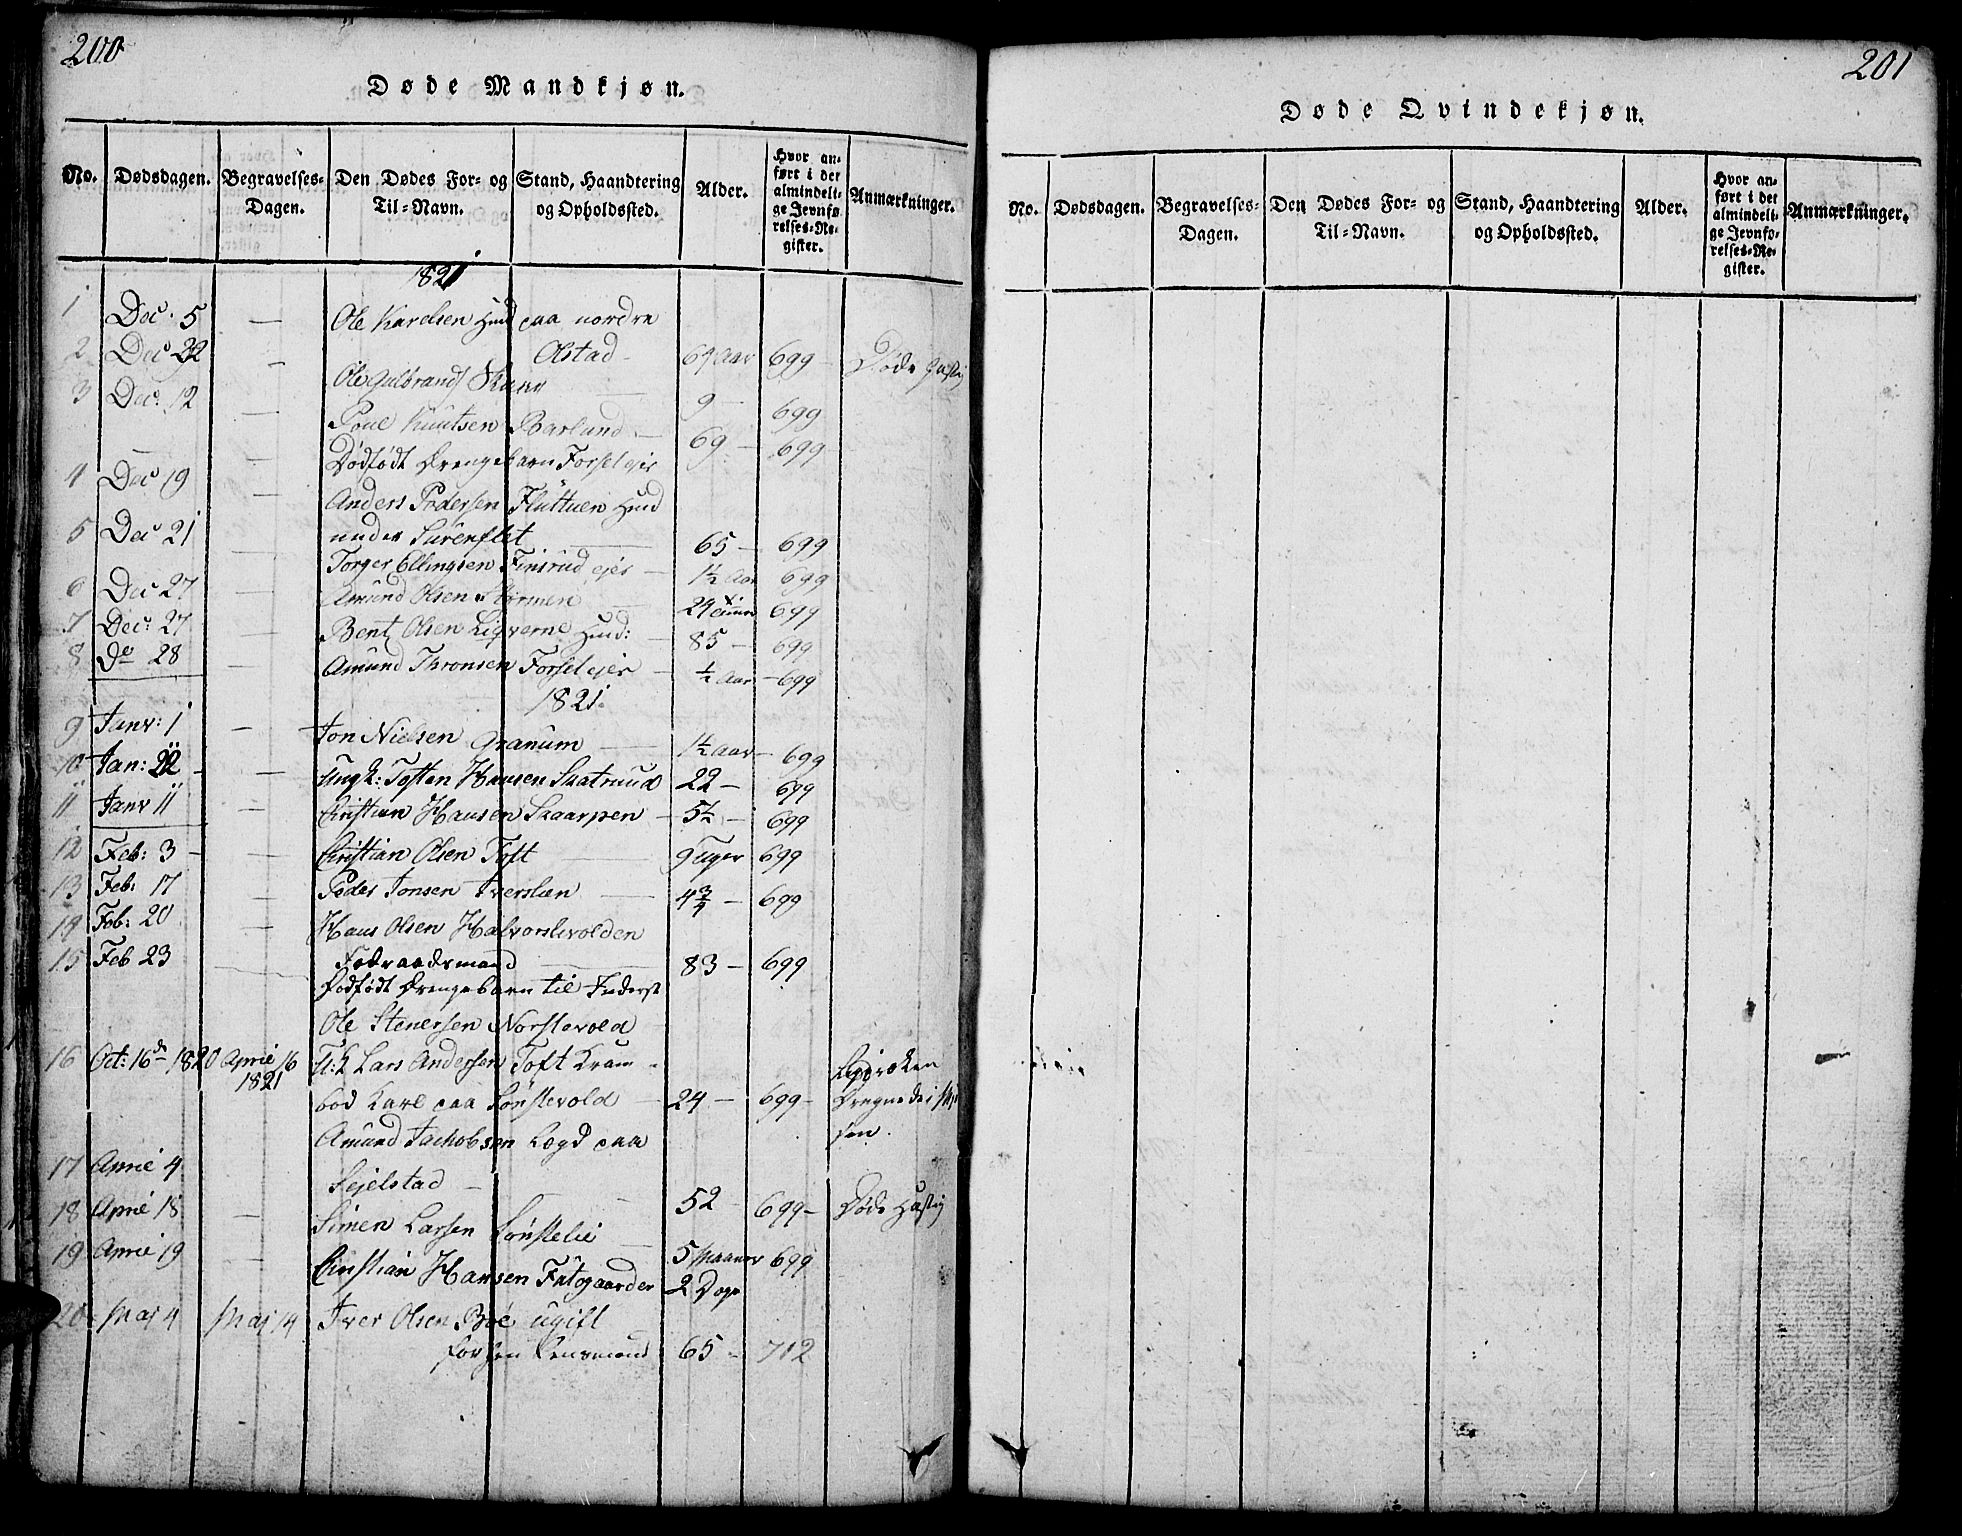 200
Døde Mandkjøn.
No. Dødsdagen. Begravelses-Dagen. Den Dødes For- og Til-Navn. Stand, Haandtering og Opholdssted. Alder. Hvor anført i det almindelige Jevnførelses-Register. Anmærkninger.
1821
1 Dec. 5 — Ole Karelsen Huusd paa nordre
Olstad — 64 Aar 699 — Døde hastig
2 Dec 22 — Ole Gulbrands Skaar — 9 — 699
3 Dec: 12 — Poul Knutsen Barlund — 69 — 699
— Dødfødt Drengebarn Forsetejer
4 Dec 19 — Anders Pedersen Fluttuen Huusd
under Surenflet — 65 — 699
5 Dec 21 — Torger Ellingsen Finsrud ejer — 1½ Aar 699
6 Dec 27 — Amund Olsen Stormen — 24 699
7 Dec: 27 — Bent Olsen Liqverne Huusd: — 85 — 699
8 Do 28 — Amund Thronsen Forsetejer — ½ Aar — 699
1821
9 Janv: 1 — Jon Nielsen Granum — 1½ Aar — 699
10 Jan: 22 — Ungk: Tosten Hansen Skatrud 22 — 699
11 Janv 11 — Christian Hansen Skaarpen — 5½ — 699
12 Feb: 3 — Christian Olsen Toft — 9 Uger 699
13 Feb: 17 — Peder Jonsen Iverslien — 4¾ — 699
14 Feb: 20 — Hans Olsen Halvorslivolden
Føderaadsmand — 83 — 699
15 Feb 23 — Dødfødt Drengebarn til Inderst
Ole Stenersen Norstevold
16 Oct: 16de 1820 April 16 1821 U:k Lars Andersen Toft Kram-
bod Karl paa Sønstevold — 24 — 699 — Druknede i Mjøsen.
Amund Jachobsen Lægd paa
17 April 4
Sejelstad — 52 — 699 — Døde Hastig
18 April 18 — Simen Larsen Sønstelie — 5 Maaner 699
19 April 19 — Christian Hansen Fatogaarder 2 Dage
20 Maj 4 Maj 14 Iver Olsen Bøe ugift
forhen Lensmand 65 — 712
201
Døde Qvindekjøn.
No. Dødsdagen. Begravelses-Dagen. Den Dødes For- og Til-Navn. Stand, Haandtering og Opholdssted. Alder. Hvor anført i det almindelige Jevnførelses-Register. Anmærkninger.